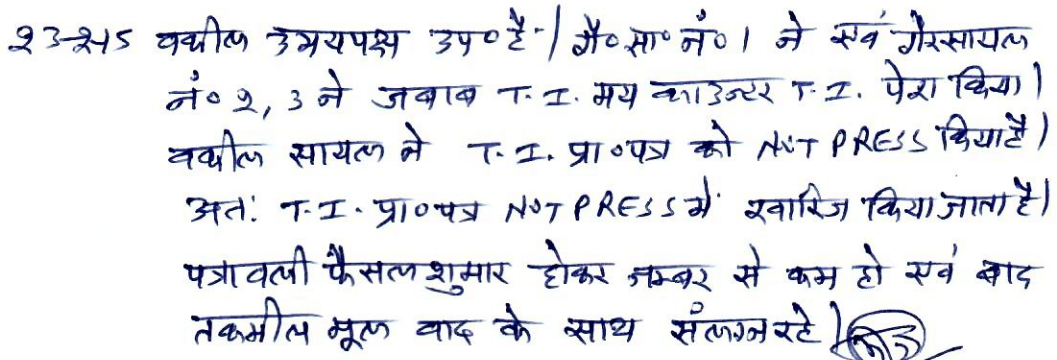 23-2-15 वकील उभयपक्ष उप० है। गै० सा० नं० 1 ने एवं गैरसायल
नं० 2, 3 ने जवाब T.I. मय काउन्टर T.I. पेश किया।
वकील सायल ने T.I. प्रा०पत्र को NOT PRESS किया है।
अतः T.I. प्रा०पत्र NOT PRESS में खारिज किया जाता है।
पत्रावली फैसल शुमार होकर नम्बर से कम हो एवं बाद
तकमील मूल वाद के साथ संलग्न रहे।